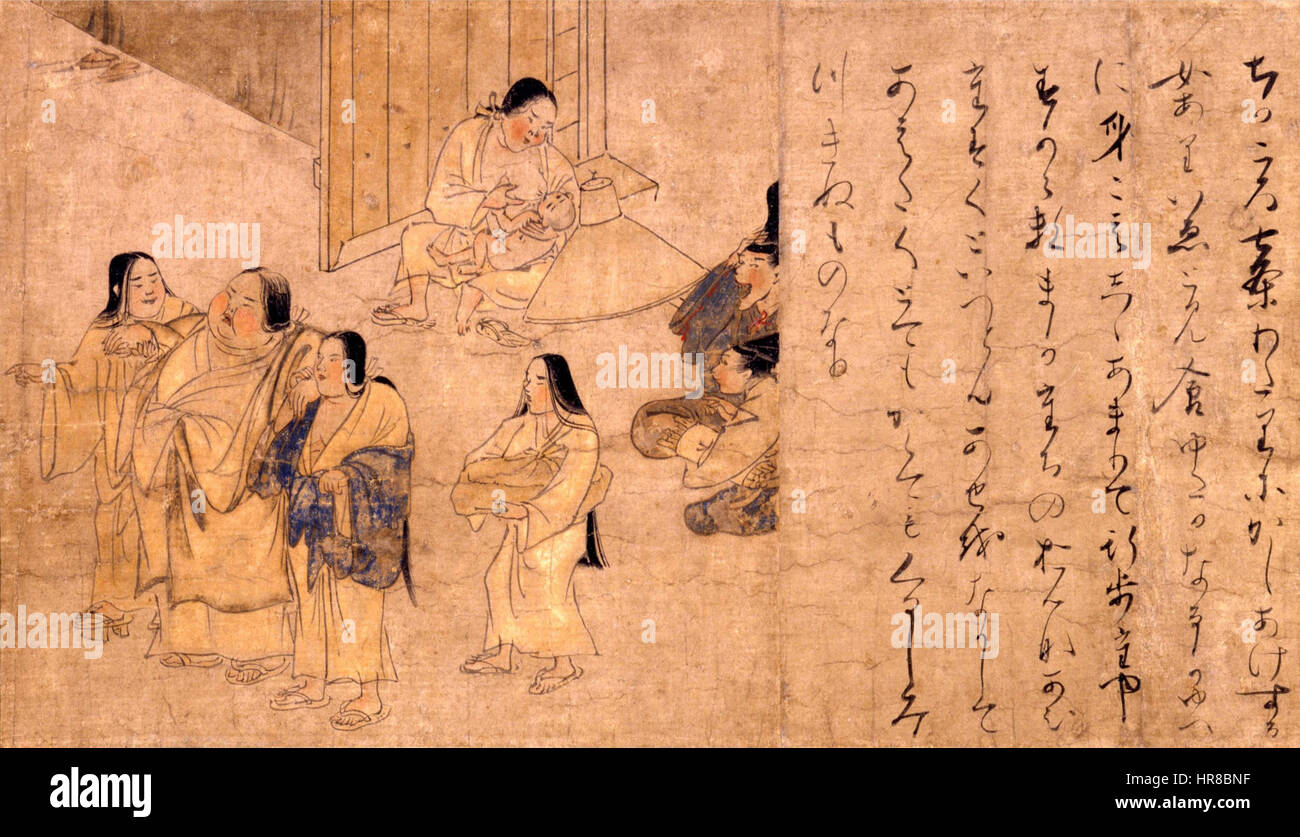 ちかころ七条わたりにかしあけする
女ありいゑとみ食ゆたかなるかゆへ
に身こえしゝあまりて行歩たや
すからすまかたちのおんなあひ
たすくといへともあせをなかして
あえくとてもかくてもくるしみ
つきぬものなり
alamy stock photo
HR8BNF
www.alamy.com